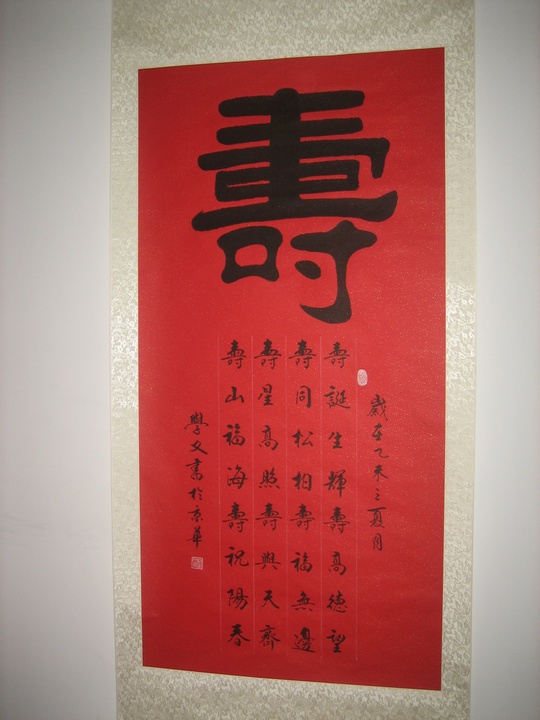 壽
歲在乙未之夏月
壽誕生輝壽高德望
壽同松柏壽福無邊
壽星高照壽與天齊
壽山福海壽祝陽春
學文書於京華